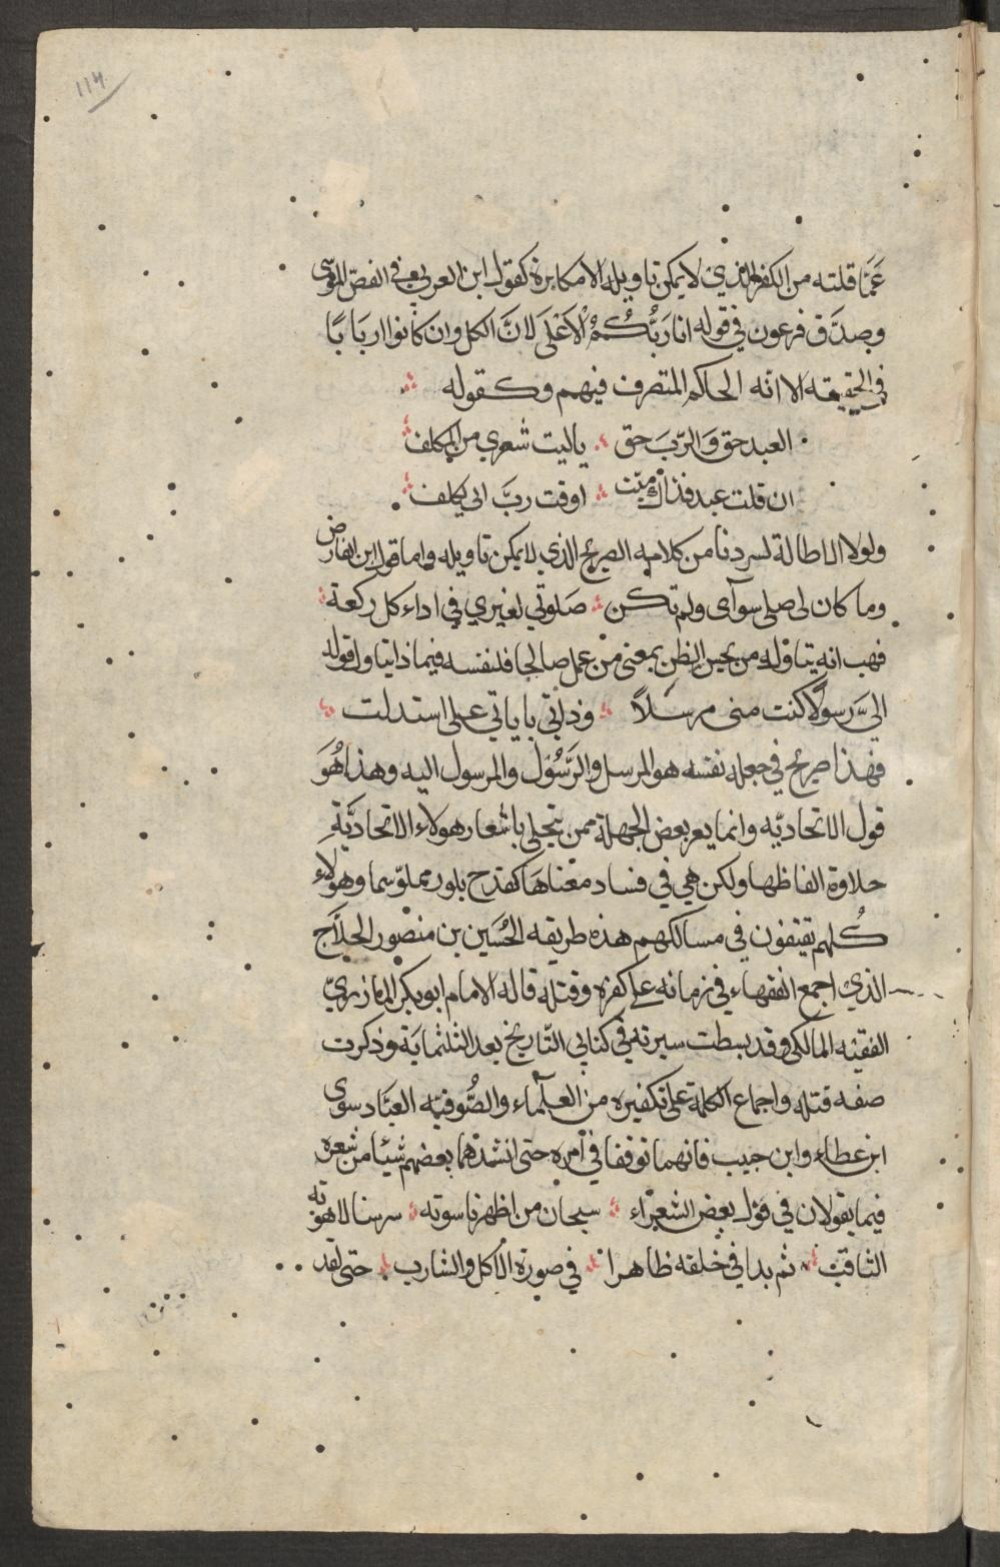 ١١٣
عَمَّا قلته من الكفر الذي لا يمكن تاويله الا مكابرة كقول ابن العربي في الفص الموسى
وصدَّق فرعون في قوله انا رَبُّكُمُ الْاَعْلَى لانَّ الكل وان كانوا اربَابًا
في الحقيقه الا انه الحاكم المتصرف فيهم وكقوله
العبد حق وَالربَّ حق يا ليت شعري من المكلف
ان قلت عبد فذاك ميّت او قت ربَّ انى يكلف
ولولا الاطالة لسردنا من كلامه الصريح الذي لا يمكن تاويله واما قول ابن الفارض
وما كان لى صلى سوآى ولم تكن صَلوتي لغيري في اداء كل ركعة
فهب انه يتاوله من يحسن الظن بمعنى من عمل صالحا فلنفسه فبماذا يتاول قوله
اليَّ رسولًا كنت منى مرسَلاً وذاتي باياتي على استدلت
فهذا صريح في جعله نفسه هو المرسل والرَّسُول والمرسول اليه وهذا هُوَ
قول الاتحاديّه وانما يغر بعض الجهلة ممن يتحلى باشعار هولاء الاتحاديَّةِ
حلاوة الفاظها ولكن هي في فساد معْناهَا كقدح بلور مملوّ سما وهولاء
كُلهم يقتفون في مسالكهم هذه طريقه الحُسَين بن منصور الحلاَّج
الذي اجمع الفقهاء في زمانه على كفره وقتله قاله الامام ابو بكر المازريّ
الفقيه المالكى وقد بسطت سيرته في كتابى التّاريخ بعد الثلثمايَة وذكرت
صفه قتله واجماع الكلمة على تكفيره من العلماء والصُّوفيّه العبَّاد سوى
ابن عطاء وابن حبيب فانهما توقفا في امره حتى انشدهما بعضهم شيًا من شعره
فيما يقولان في قول بعض الشعراء سبحان من اظهر ناسوته سر سنا لاهوته
الثاقب ثم بدا في خلقه ظاهرا في صورة الاكل والشارب حتى لقد